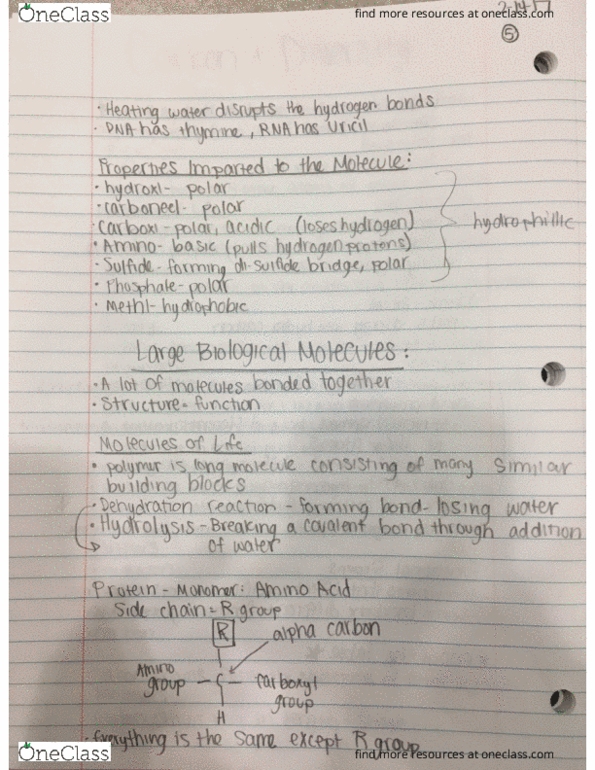 OneClass
find more resources at oneclass.com
5
· Heating water disrupts the hydrogen bonds
· DNA has thymine, RNA has Uricil
Properties Imparted to the Molecule:
· hydroxl- polar
· carboneel- polar
· Carboxl- polar, acidic (loses hydrogen)
hydrophillic
· Amino- basic (pulls hydrogen protons)
· Sulfide- forming di-sulfide bridge, polar
· Phosphate- polar
· Methl- hydrophobic
Large Biological Molecules:
· A lot of molecules bonded together
· Structure = function
Molecules of Life
· polymur is long molecule consisting of many similar
building blocks
· Dehydration reaction - forming bond- losing water
· Hydrolysis - Breaking a covalent bond through addition
of water
Protein - Monomer: Amino Acid
Side chain = R group
R
alpha carbon
Amino
group
C
carboxyl
group
H
· Everything is the same except R group
OneClass
find more resources at oneclass.com